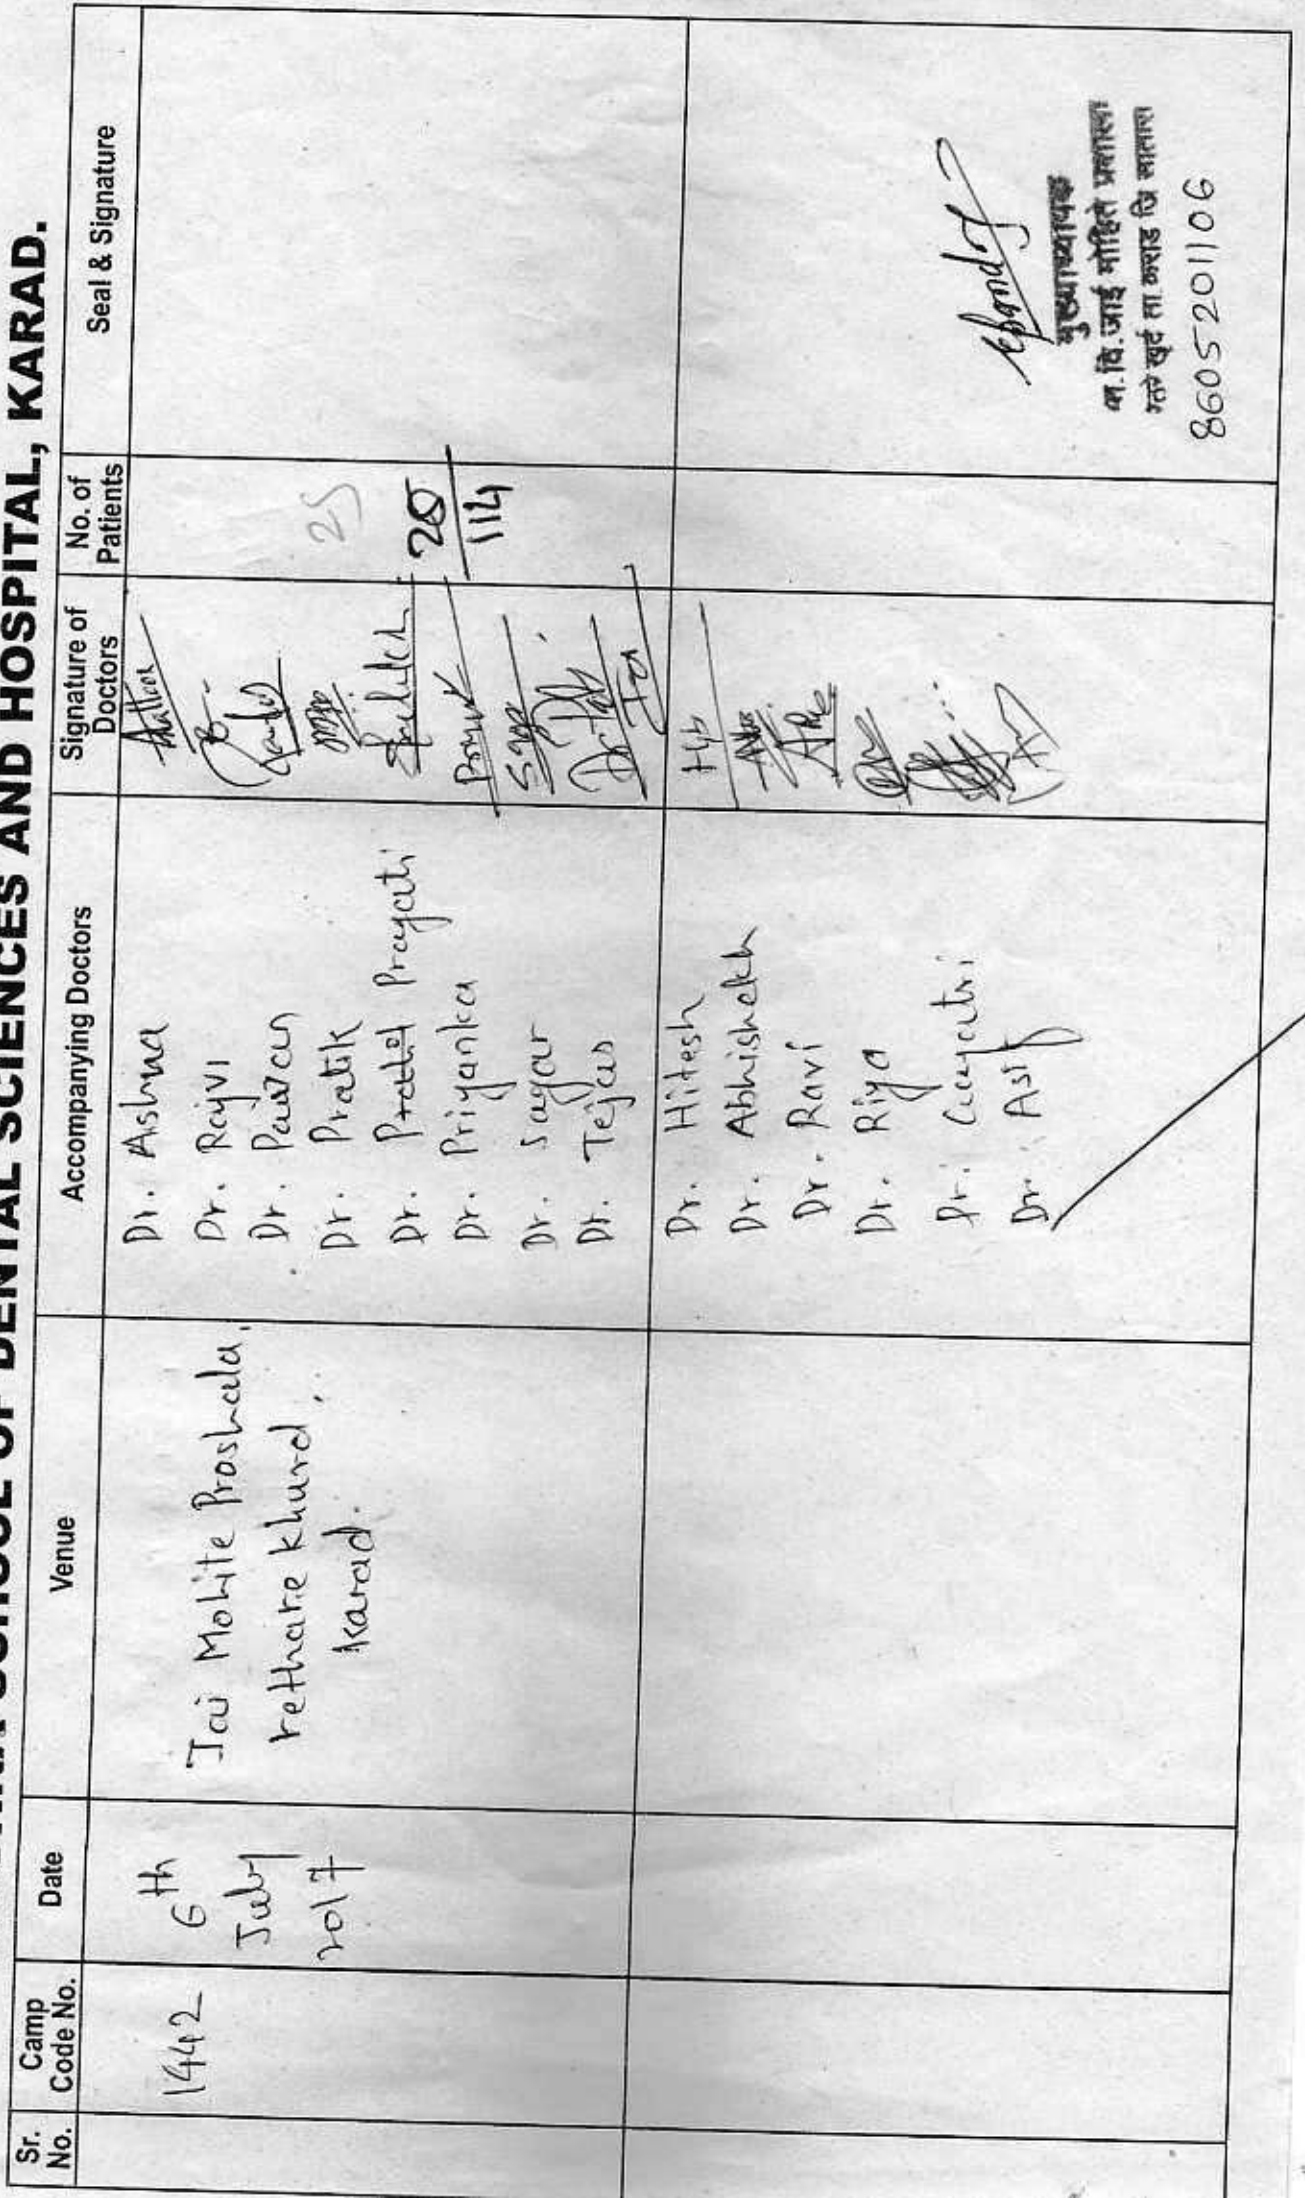 SCHOOL OF DENTAL SCIENCES AND HOSPITAL, KARAD.
Sr. No.
Camp Code No.
Date
Venue
Accompanying Doctors
Signature of Doctors
No. of Patients
Seal & Signature
1442
6th
July
2017
Jai Mohite Prashala,
rethare khurd,
Karad.
Dr. Ashna
Dr. Rajvi
Dr. Pawan
Dr. Pratik
Dr. Prayati
Dr. Priyanka
Dr. Sagar
Dr. Tejas
25
114
Dr. Hitesh
Dr. Abhishekh
Dr. Ravi
Dr. Riya
Dr. Gayatri
Dr. Asif
मुख्याध्यापक
जाई मोहिते प्रशाला
खुर्द ता. कराड जि सातारा
8605201106